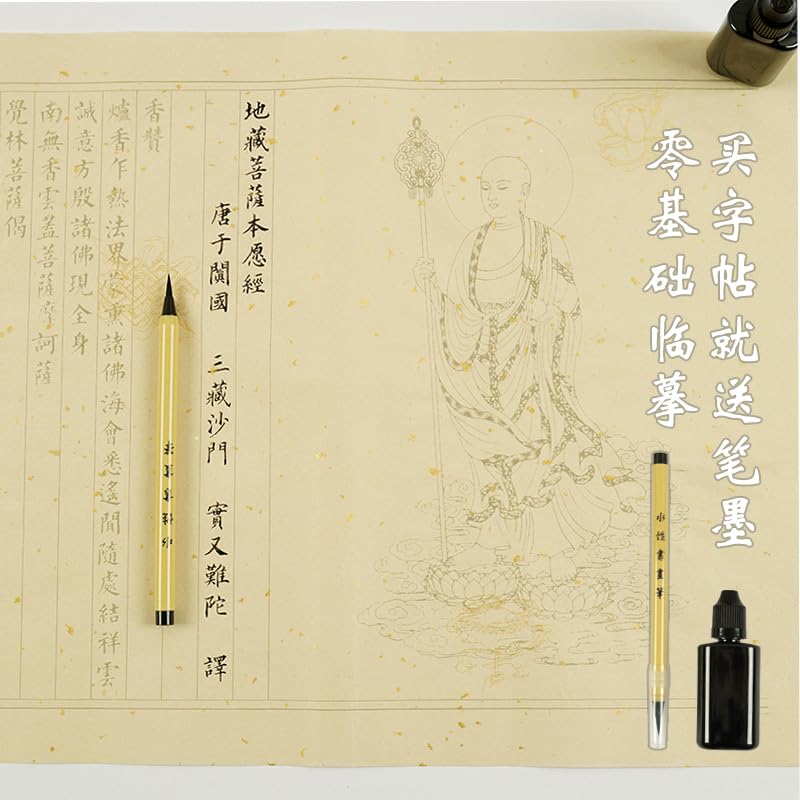 买字帖就送笔墨
零基础临摹
地藏菩萨本愿經
唐于闐國 三藏沙門 實叉難陀 譯
香赞
爐香乍熱法界蒙熏諸佛海會悉遙聞隨處結祥雲
誠意方殷諸佛現全身
南無香雲蓋菩薩摩訶薩
覺林菩薩偈
水性書畫筆
水性書畫筆